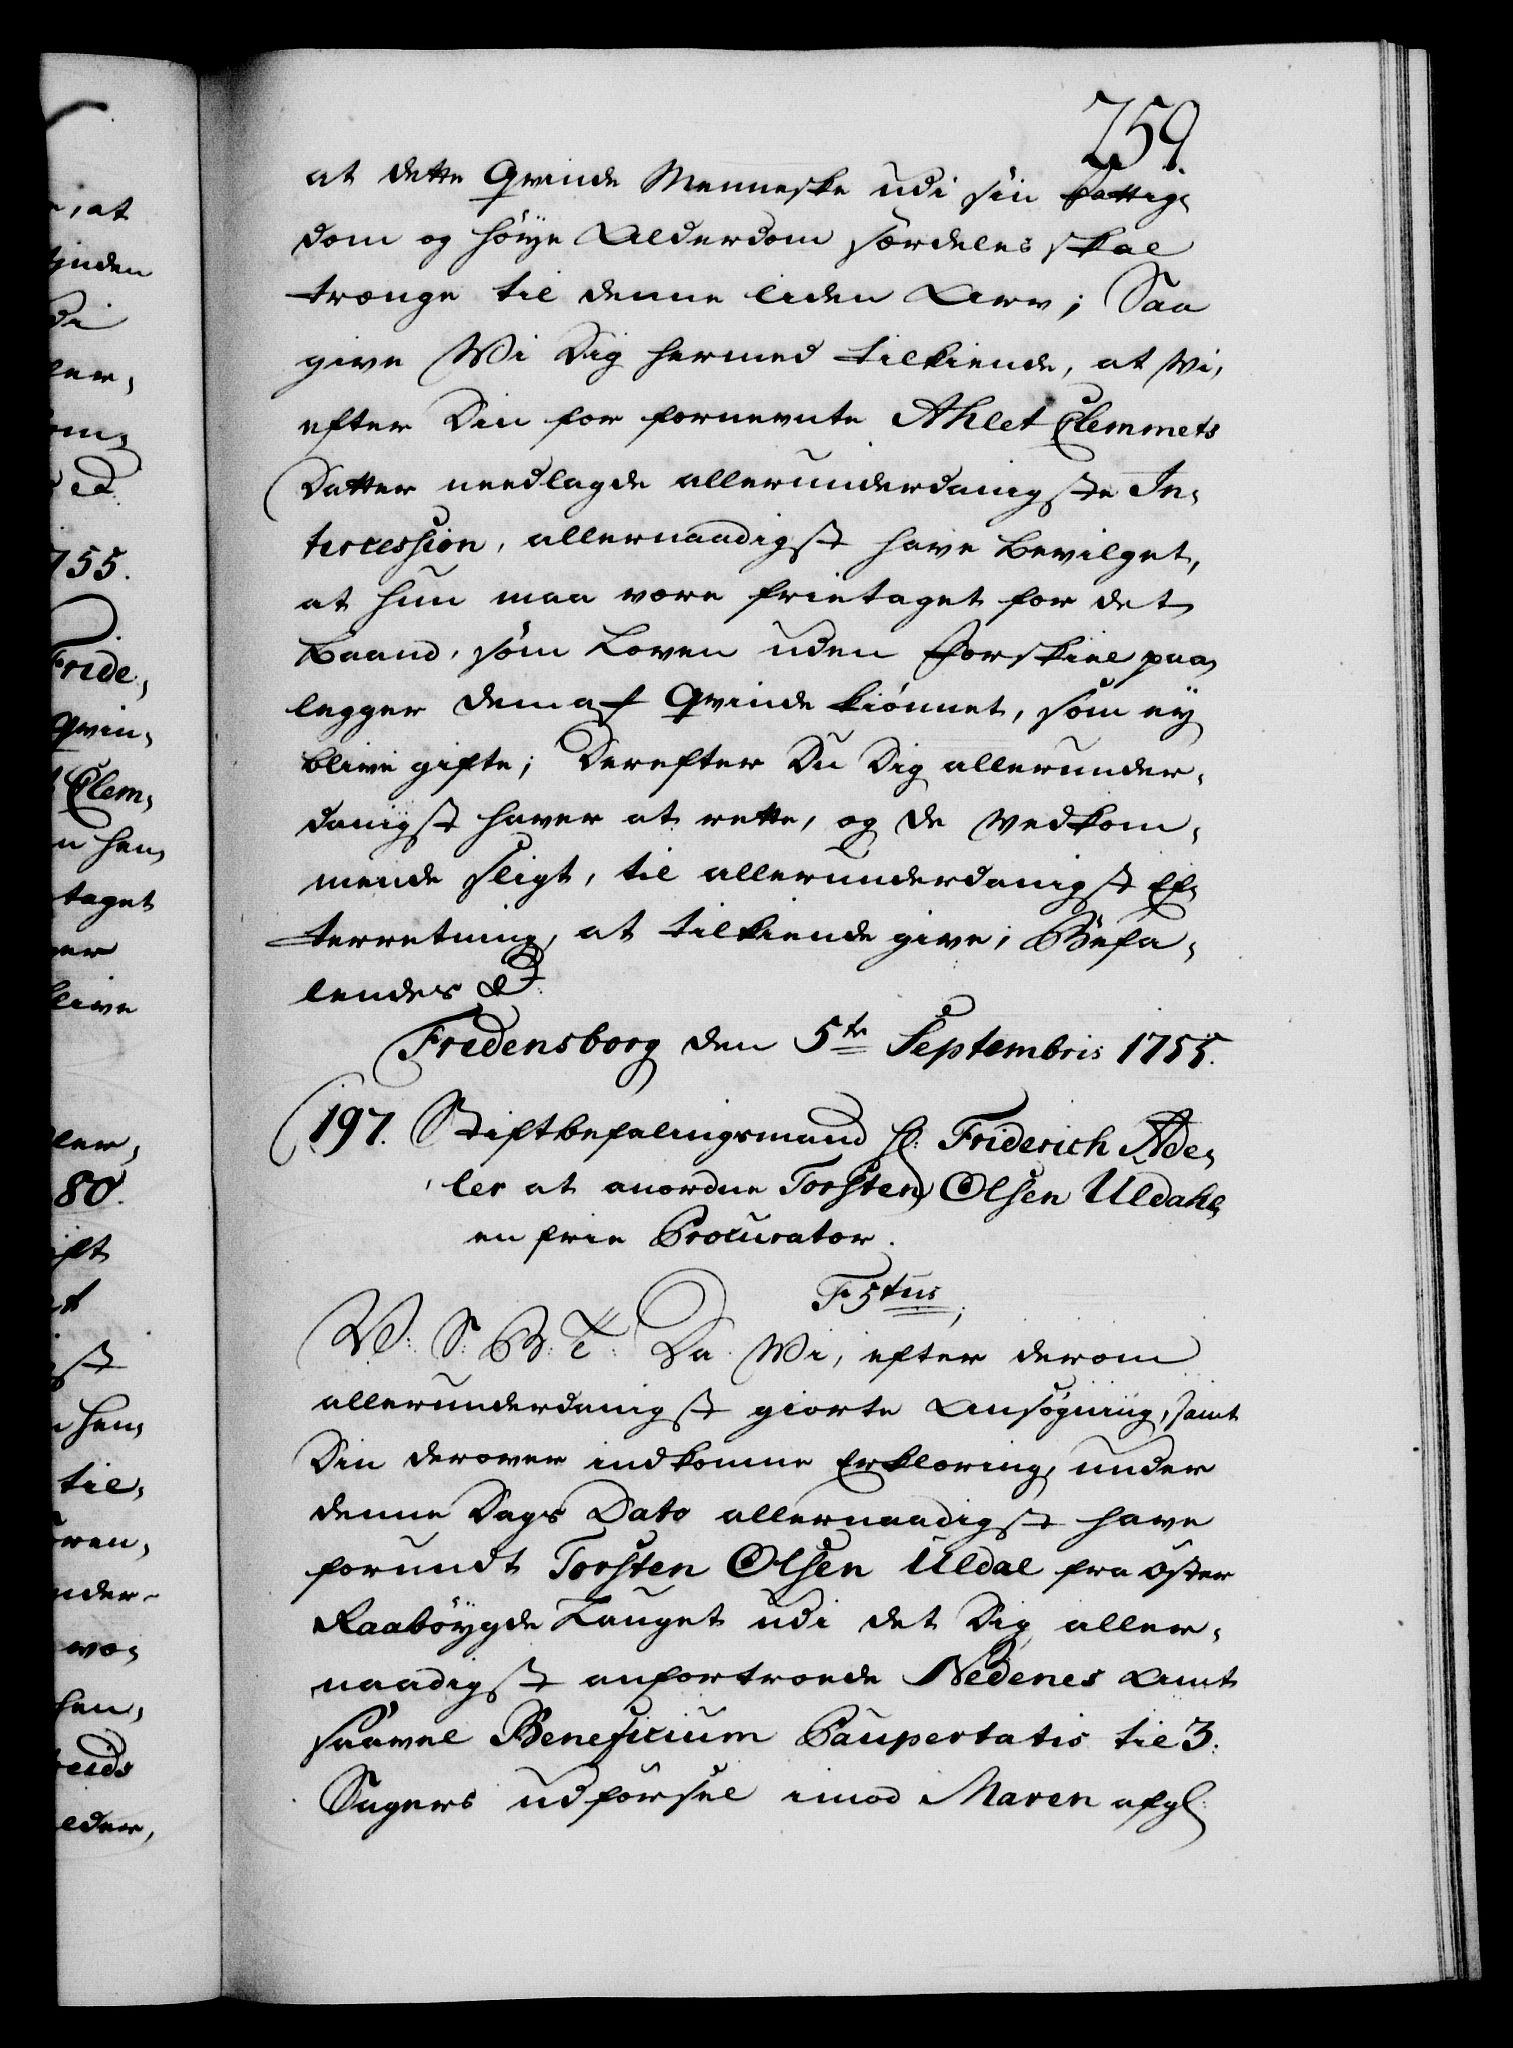 259.
at dette Qvinde Menneske udi sin Fattig¬
dom og höye Alderdom særdeles skal
trænge til denne liden Arv; Saa
give Wi Dig hermed tilkiende, at Wi,
efter Din for fornevnte Ahlet Clemmets
Datter needlagde allerunderdanigste In¬
tercession, allernaadigst have bevilget,
at hun maa være frietaget for det
Baand, som Loven uden Forskiel paa¬
legger dem af Qvinde kiönnet, som ey
blive gifte; Derefter Du Dig allerunder¬
danigst haver at rette, og de Vedkom¬
mende sligt, til allerunderdanigst Ef¬
terretning, at tilkiende give; Befa¬
lendes &.
Fredensborg den 5te Septembris 1755.
197. Stiftbefalingsmand H: Friderich Ade¬
ler at anordne Torsten Olsen Uldahl
en frie Procurator.
F 5tus;
W: S: G: T: Da Wi, efter derom
allerunderdanigst giorte Ansögning, samt
Din derover indkomne Erklæring, under
denne Dags Dato allernaadigst have
forundt Torsten Olsen Uldal fra Öster
Raaböygde Lauget udi det Dig aller¬
naadigst anfortroede Nedenes Amt
saavel Beneficium Paupertatis til 3.
Sagers udförsel imod Maren afgl: